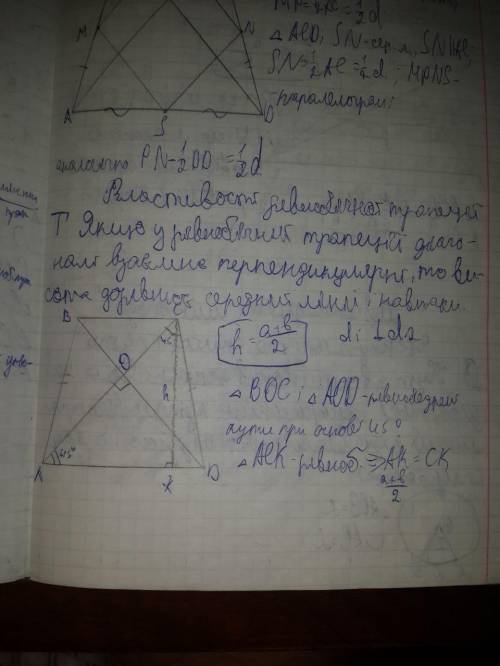 M
N
A
D
S
MP=½AC=½d
△ACD, SN-сер.л, SN||AC,
SN=½AC=½d; MPNS-
паралелограм;
аналогічно PN=½BD=½d
Властивості рівнобічної трапеції
Т Якщо у рівнобічній трапеції діаго-
налі взаємно перпендикулярні, то ви-
сота дорівнює середній лінії і навпаки.
B
O
45°
h
A
45°
K
D
h=a+b/2
d₁⊥d₂
△BOC; △AOD-рівнобедрені
кути при основі 45°
△ACK-рівноб ⇒ AK=CK
a+b/2